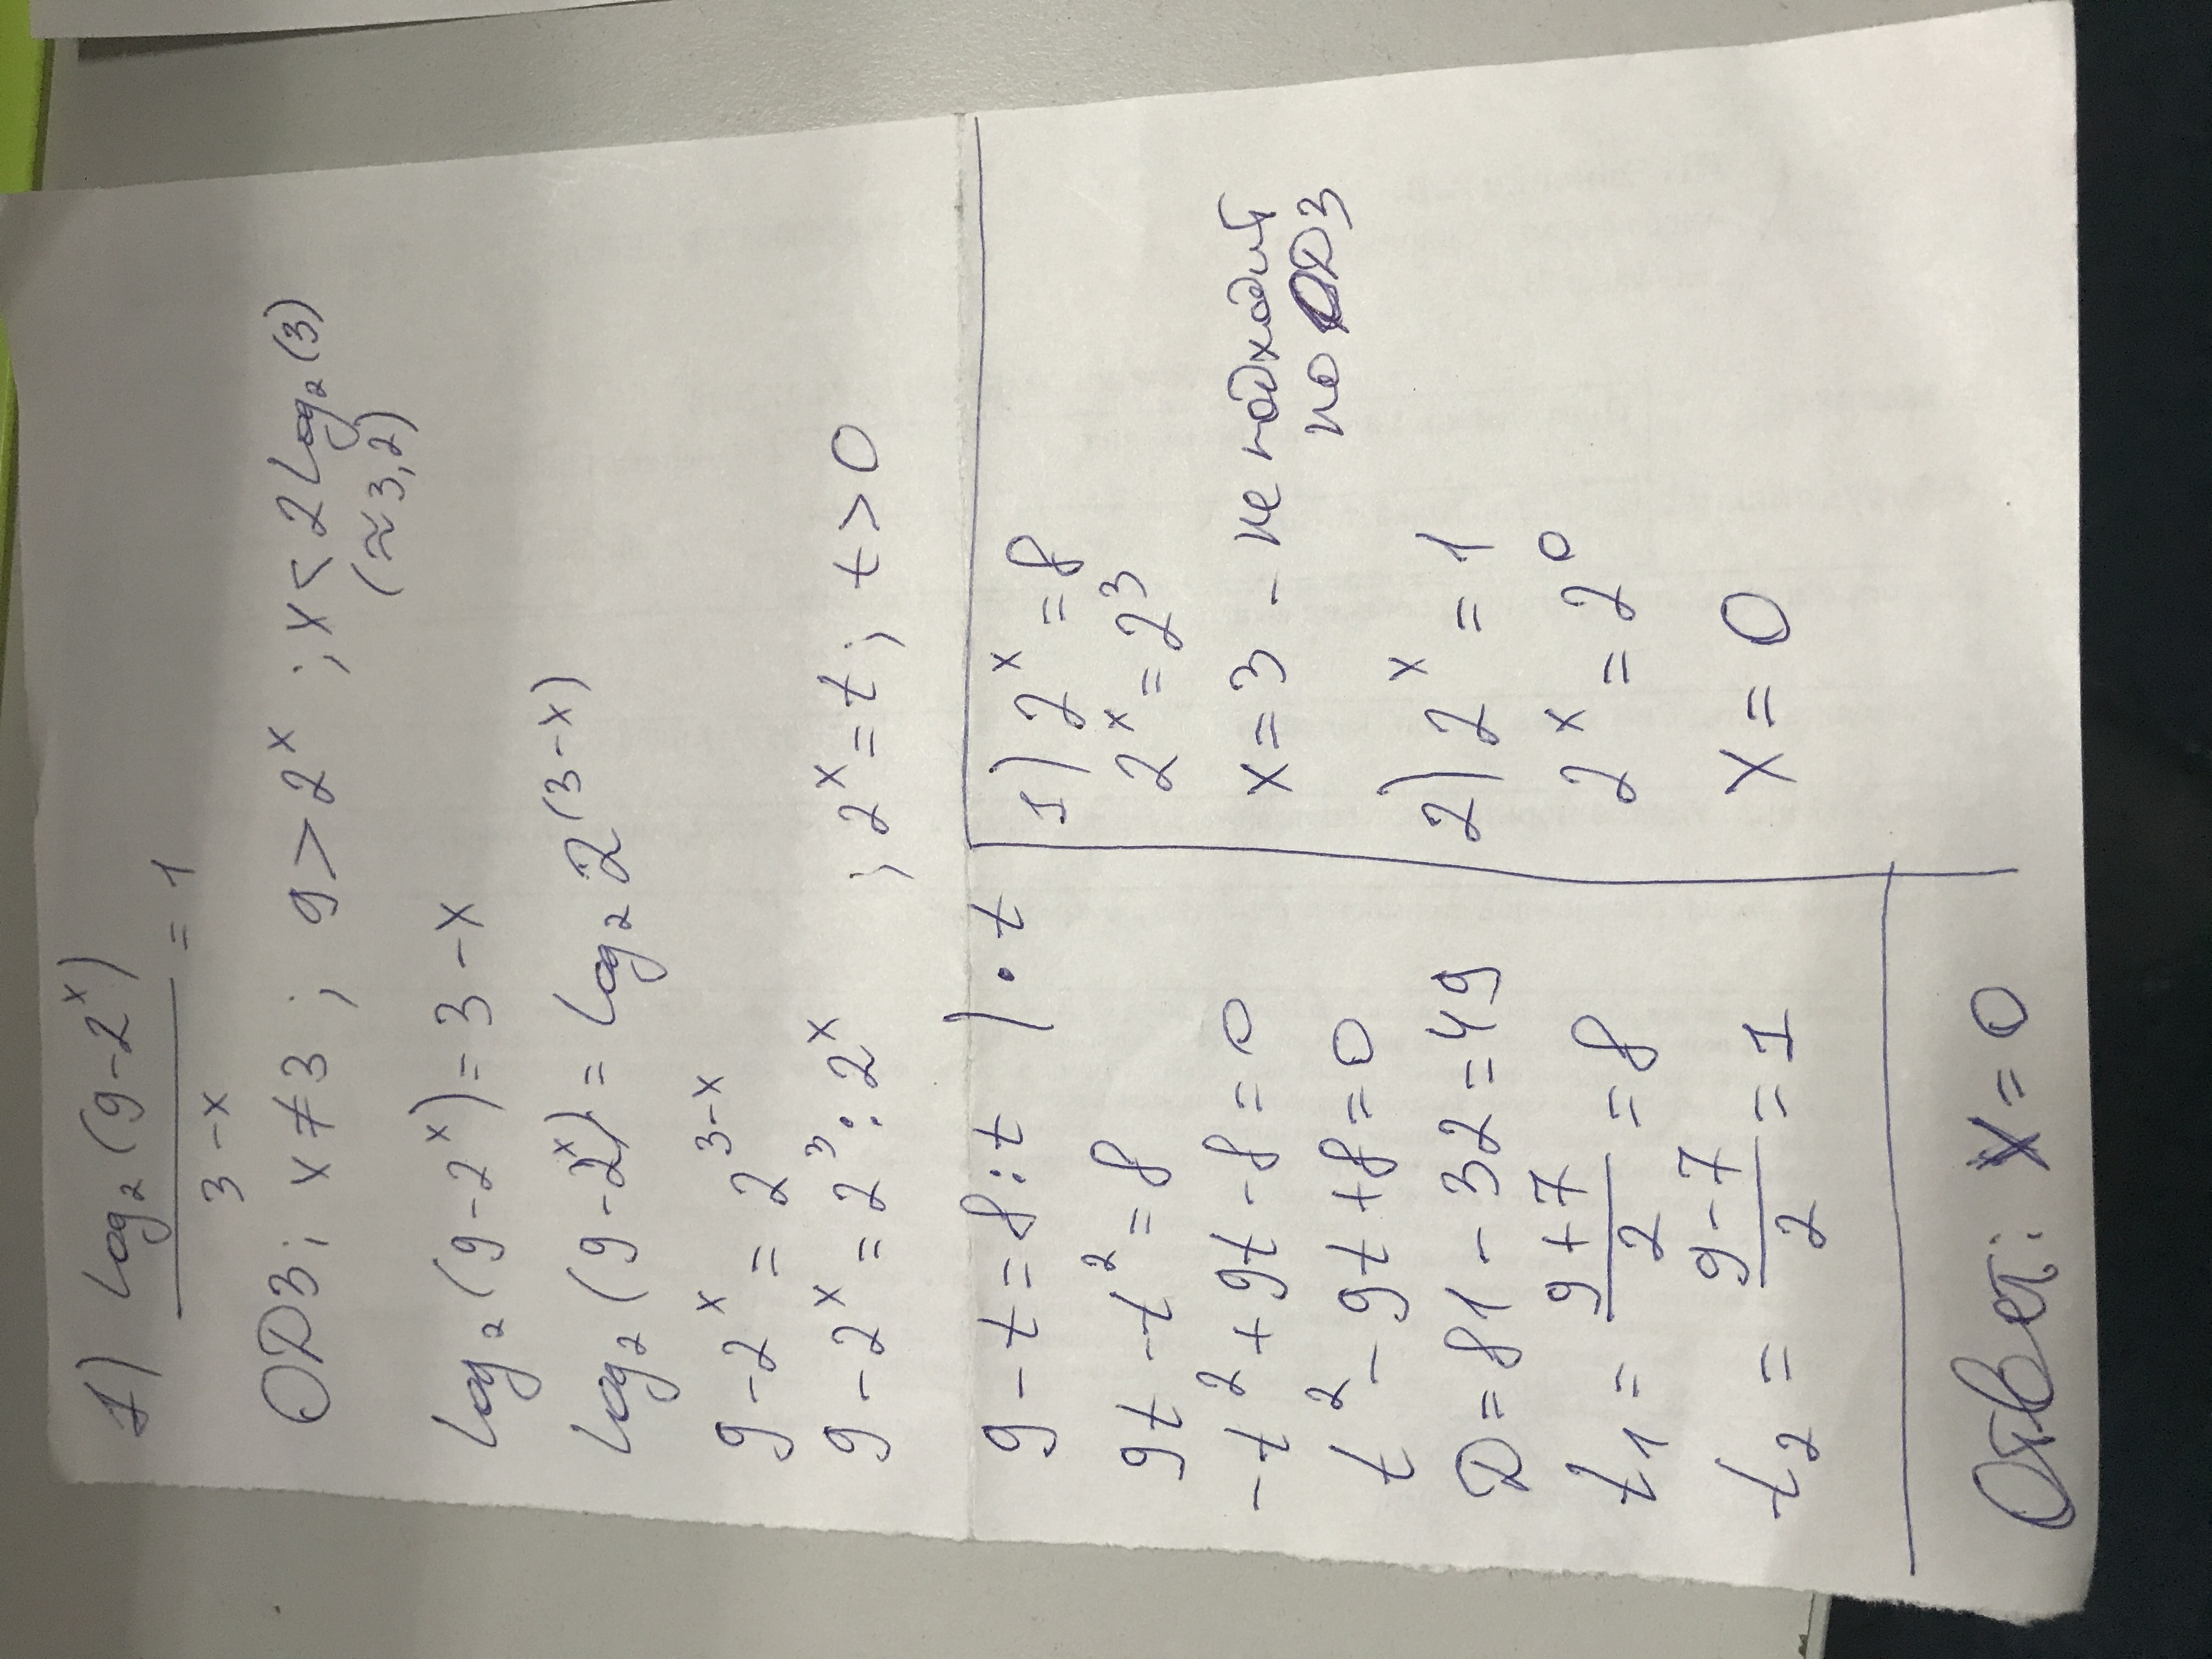 1) log₂(9-2ˣ)
3-x = 1
ОДЗ: x≠3 ; 9>2ˣ ; x<2log₂(3)
(≈3,2)
log₂(9-2ˣ)=3-x
log₂(9-2ˣ)=log₂2⁽³⁻ˣ⁾
9-2ˣ=2³⁻ˣ
9-2ˣ=2³:2ˣ ; 2ˣ=t; t>0
9-t=8:t | •t
9t-t²=8
-t²+9t-8=0
t²-9t+8=0
D=81-32=49
t₁=(9+7)/2=8
t₂=(9-7)/2=1
1) 2ˣ=8
2ˣ=2³
x=3 - не подходит
по ОДЗ
2) 2ˣ=1
2ˣ=2⁰
x=0
Ответ: x=0